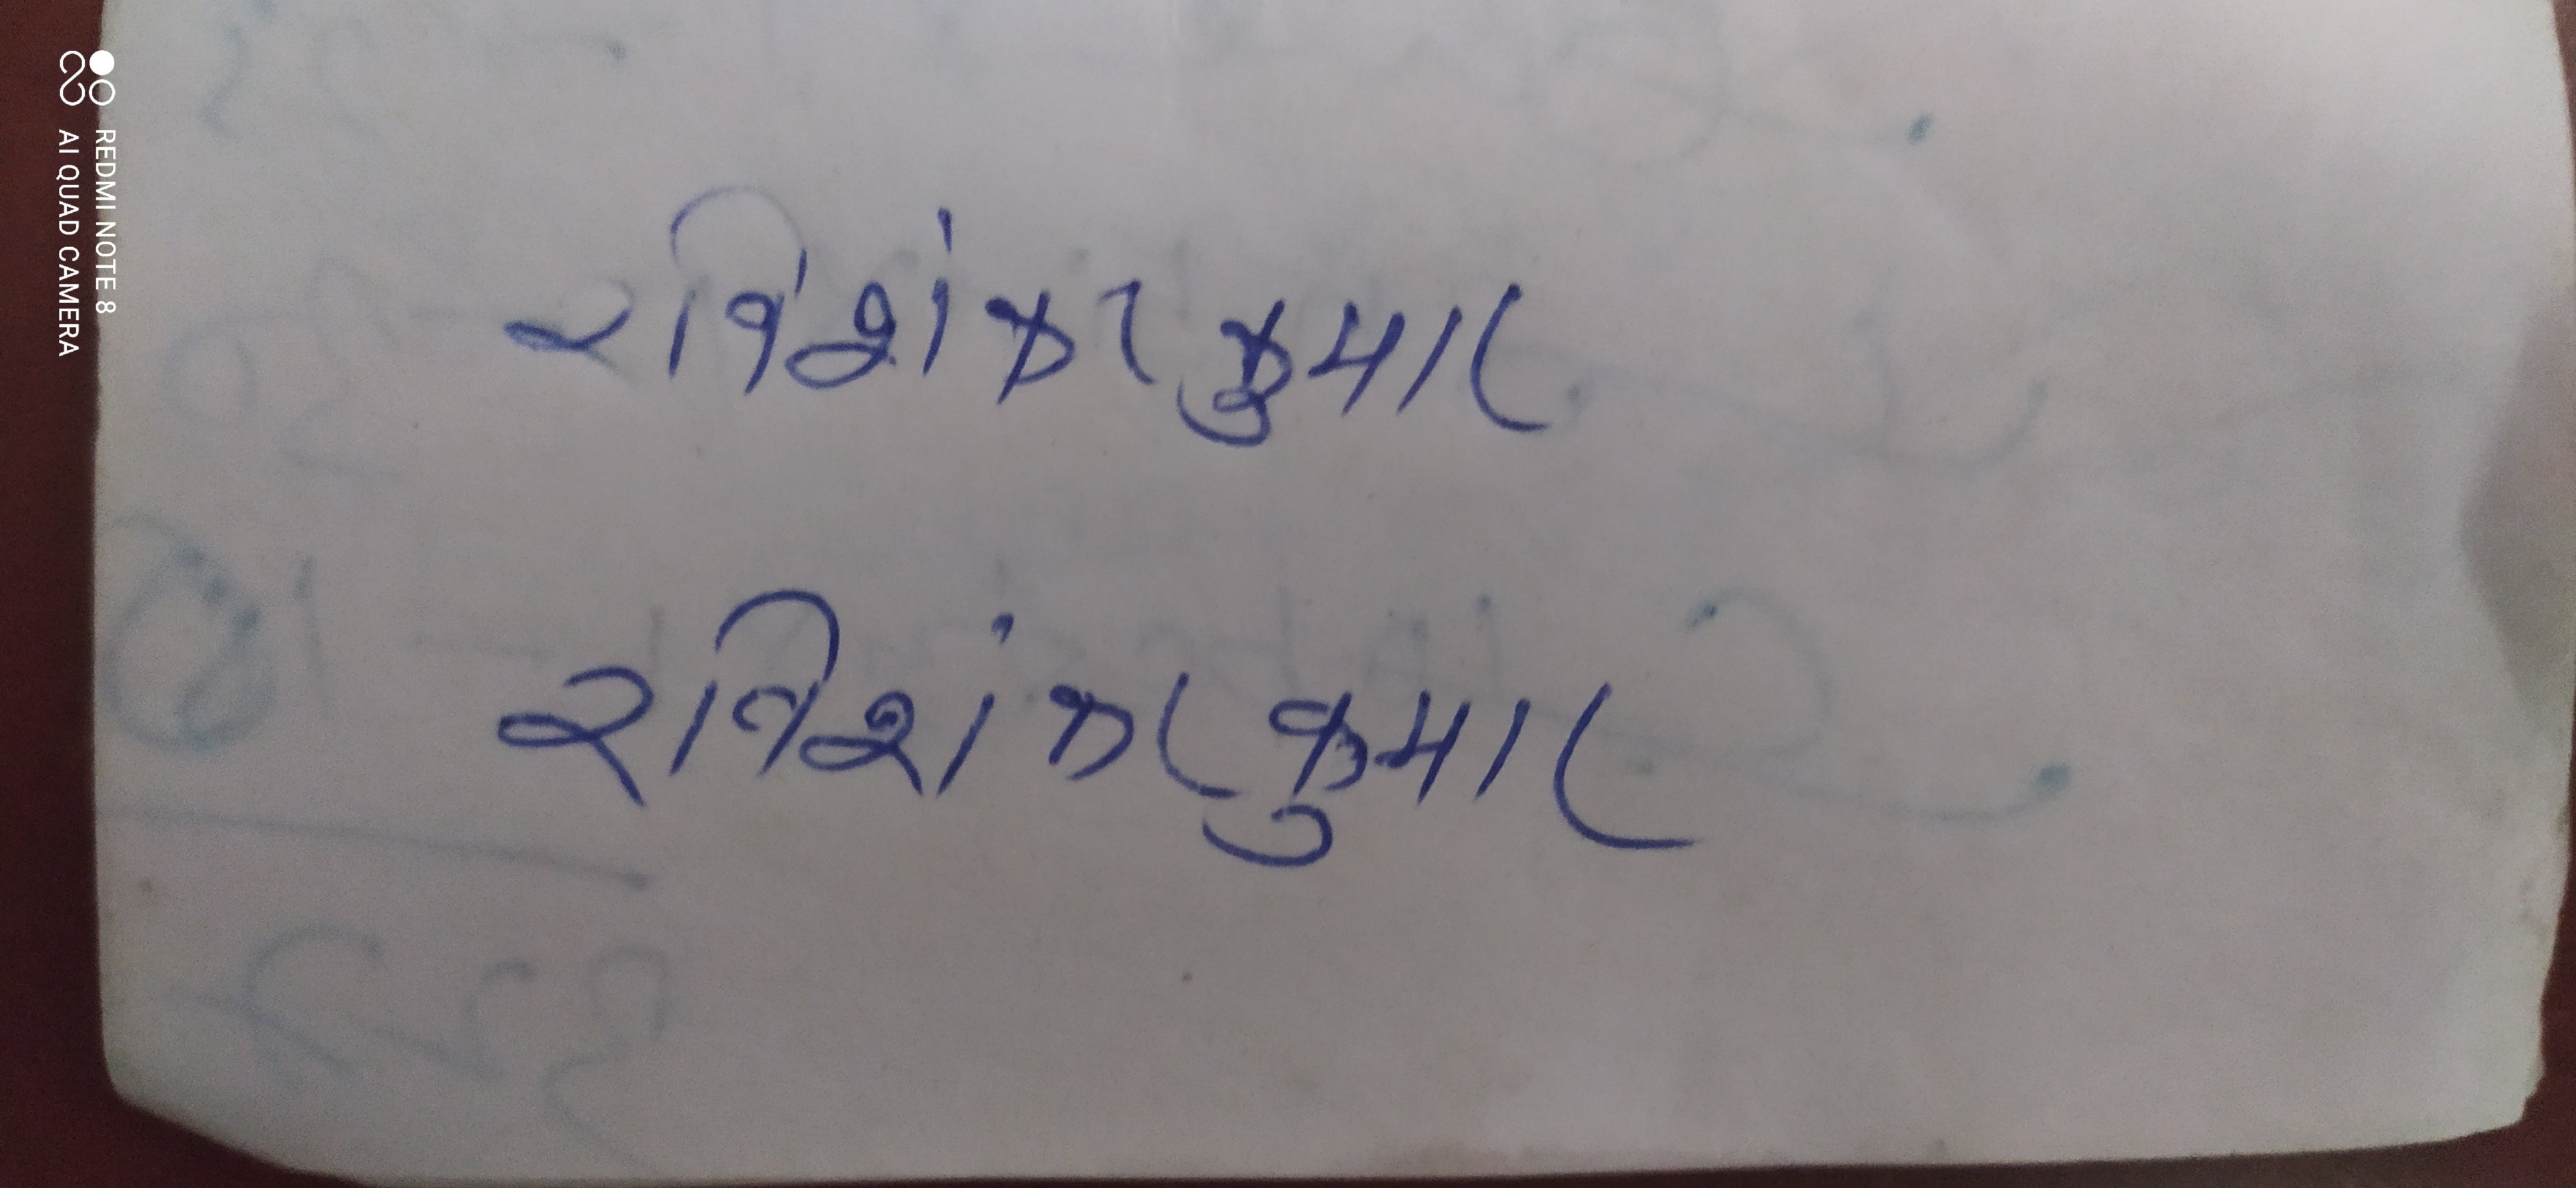 रविशंकर कुमार
रविशंकर कुमार
REDMI NOTE 8
AI QUAD CAMERA